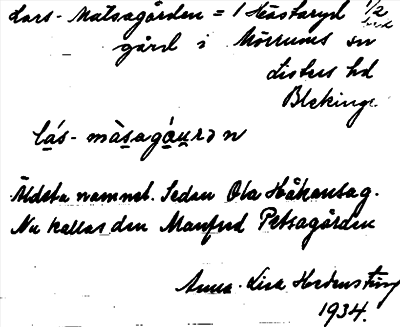 Lars-Matsagården = 1 Hästaryd 1/2
gård i Mörrums sn
Listers hd
Blekinge
lá̱s-mà̱sagá̱u̱rən
Äldsta namnet. Sedan Ola Håkansag.
Nu kallas den Manfred Petsagården
Anna-Lisa
1934.